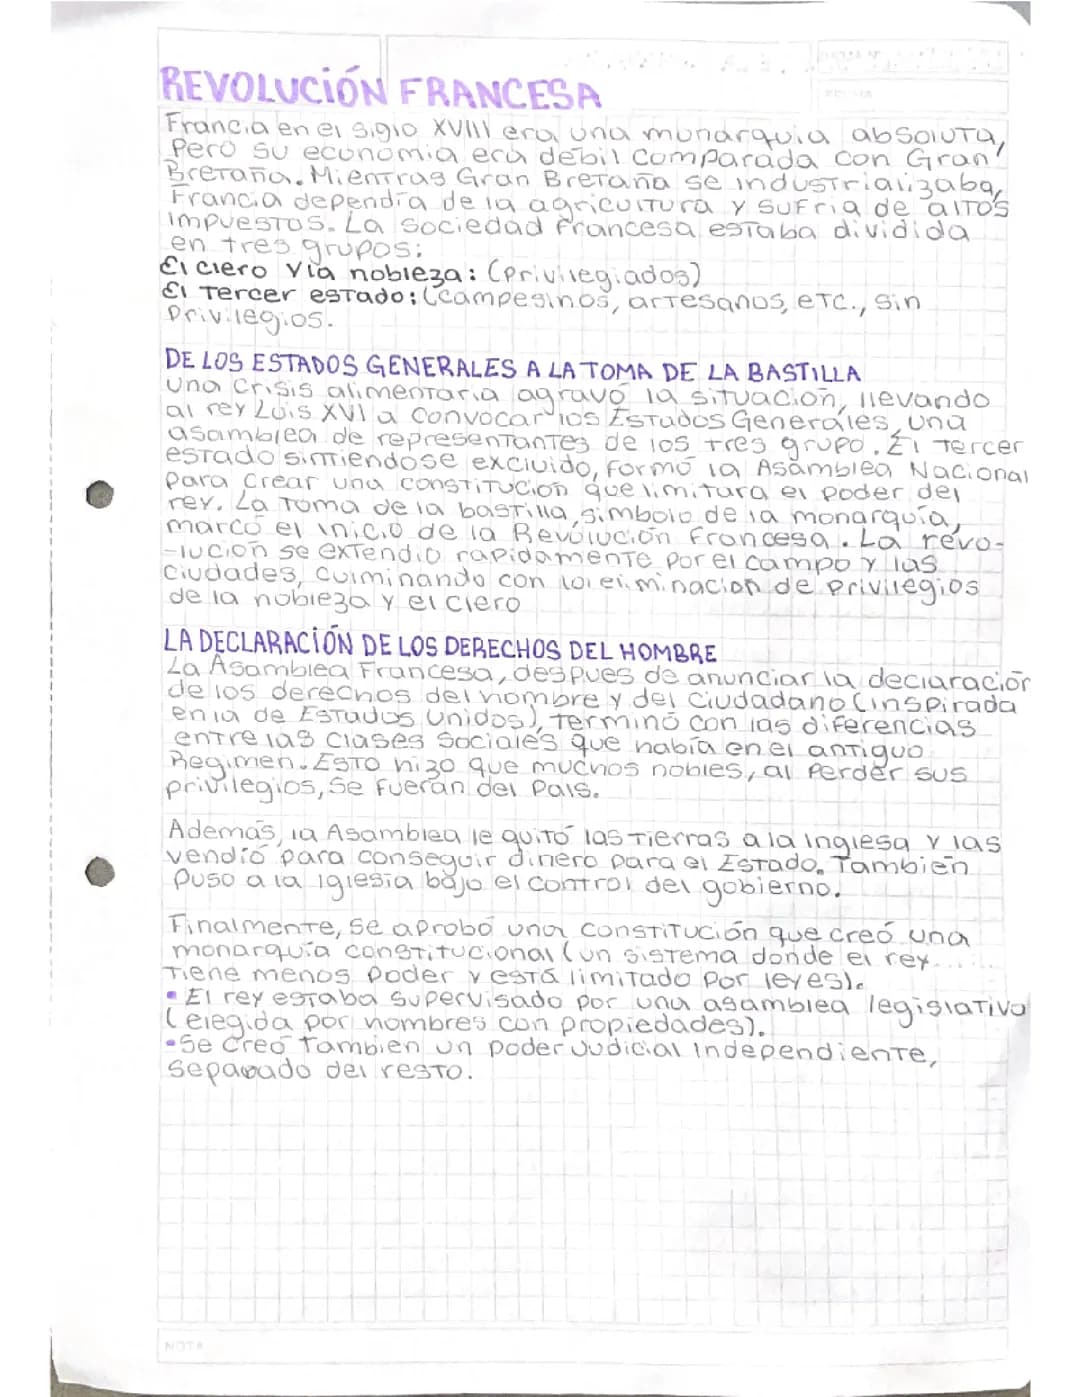 REVOLUCIÓN FRANCESA
FECHA
Francia en el siglo XVIII era una monarquia absoluta,
Pero su economia era débil comparada con Gran
Bretaña. Mientras Gran Bretaña se industrializaba,
Francia dependía de la agricultura y sufria de altos
impuestos. La sociedad francesa estaba dividida
en tres grupos:
El clero y la nobleza: (privilegiados)
El tercer estado: (campesinos, artesanos, etc., sin
privilegios.
DE LOS ESTADOS GENERALES A LA TOMA DE LA BASTILLA
una crisis alimentaria agravó la situación, llevando
al rey Luis XVI a convocar los Estados Generales, una
asamblea de representantes de los tres grupo. El tercer
estado sintiendose excluido, formó la Asamblea Nacional
para crear una constitución que limitara el poder del
rey. La toma de la bastilla, simbolo de la monarquía,
marcó el inicio de la Revolución Francesa. La revo-
-lución se extendio rapidamente por el campo y las
ciudades, culminando con la eliminacion de privilegios
de la nobleza y el clero
LA DECLARACIÓN DE LOS DERECHOS DEL HOMBRE
La Asamblea Francesa, despues de anunciar la declaración
de los derechos del hombre y del ciudadano (inspirada
en la de Estados Unidos), terminó con las diferencias
entre las clases sociales que había en el antiguo
Regimen. Esto hizo que muchos nobles, al perder sus
privilegios, se fueran del País.
Además, la Asamblea le quitó las tierras a la Inglesa y las
vendió para conseguir dinero para el Estado. También
puso a la iglesia bajo el control del gobierno.
Finalmente, se aprobó una constitución que creó una
monarquía constitucional (un sistema donde el rey
tiene menos poder y está limitado por leyes).
• El rey estaba supervisado por una asamblea legislativa
(elegida por hombres con propiedades).
•Se creó tambien un poder Judicial Independiente,
separado del resto.
NOTA